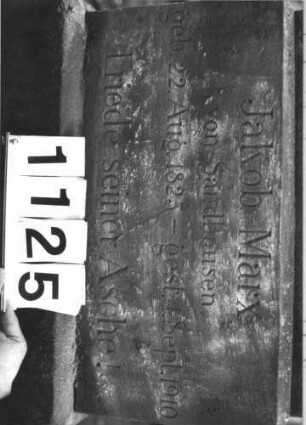 Jakob Marx
von Sandhausen
geb. 22 Aug. 182 – gest. 1 Sept. 1910
Friede seiner Asche.
1125